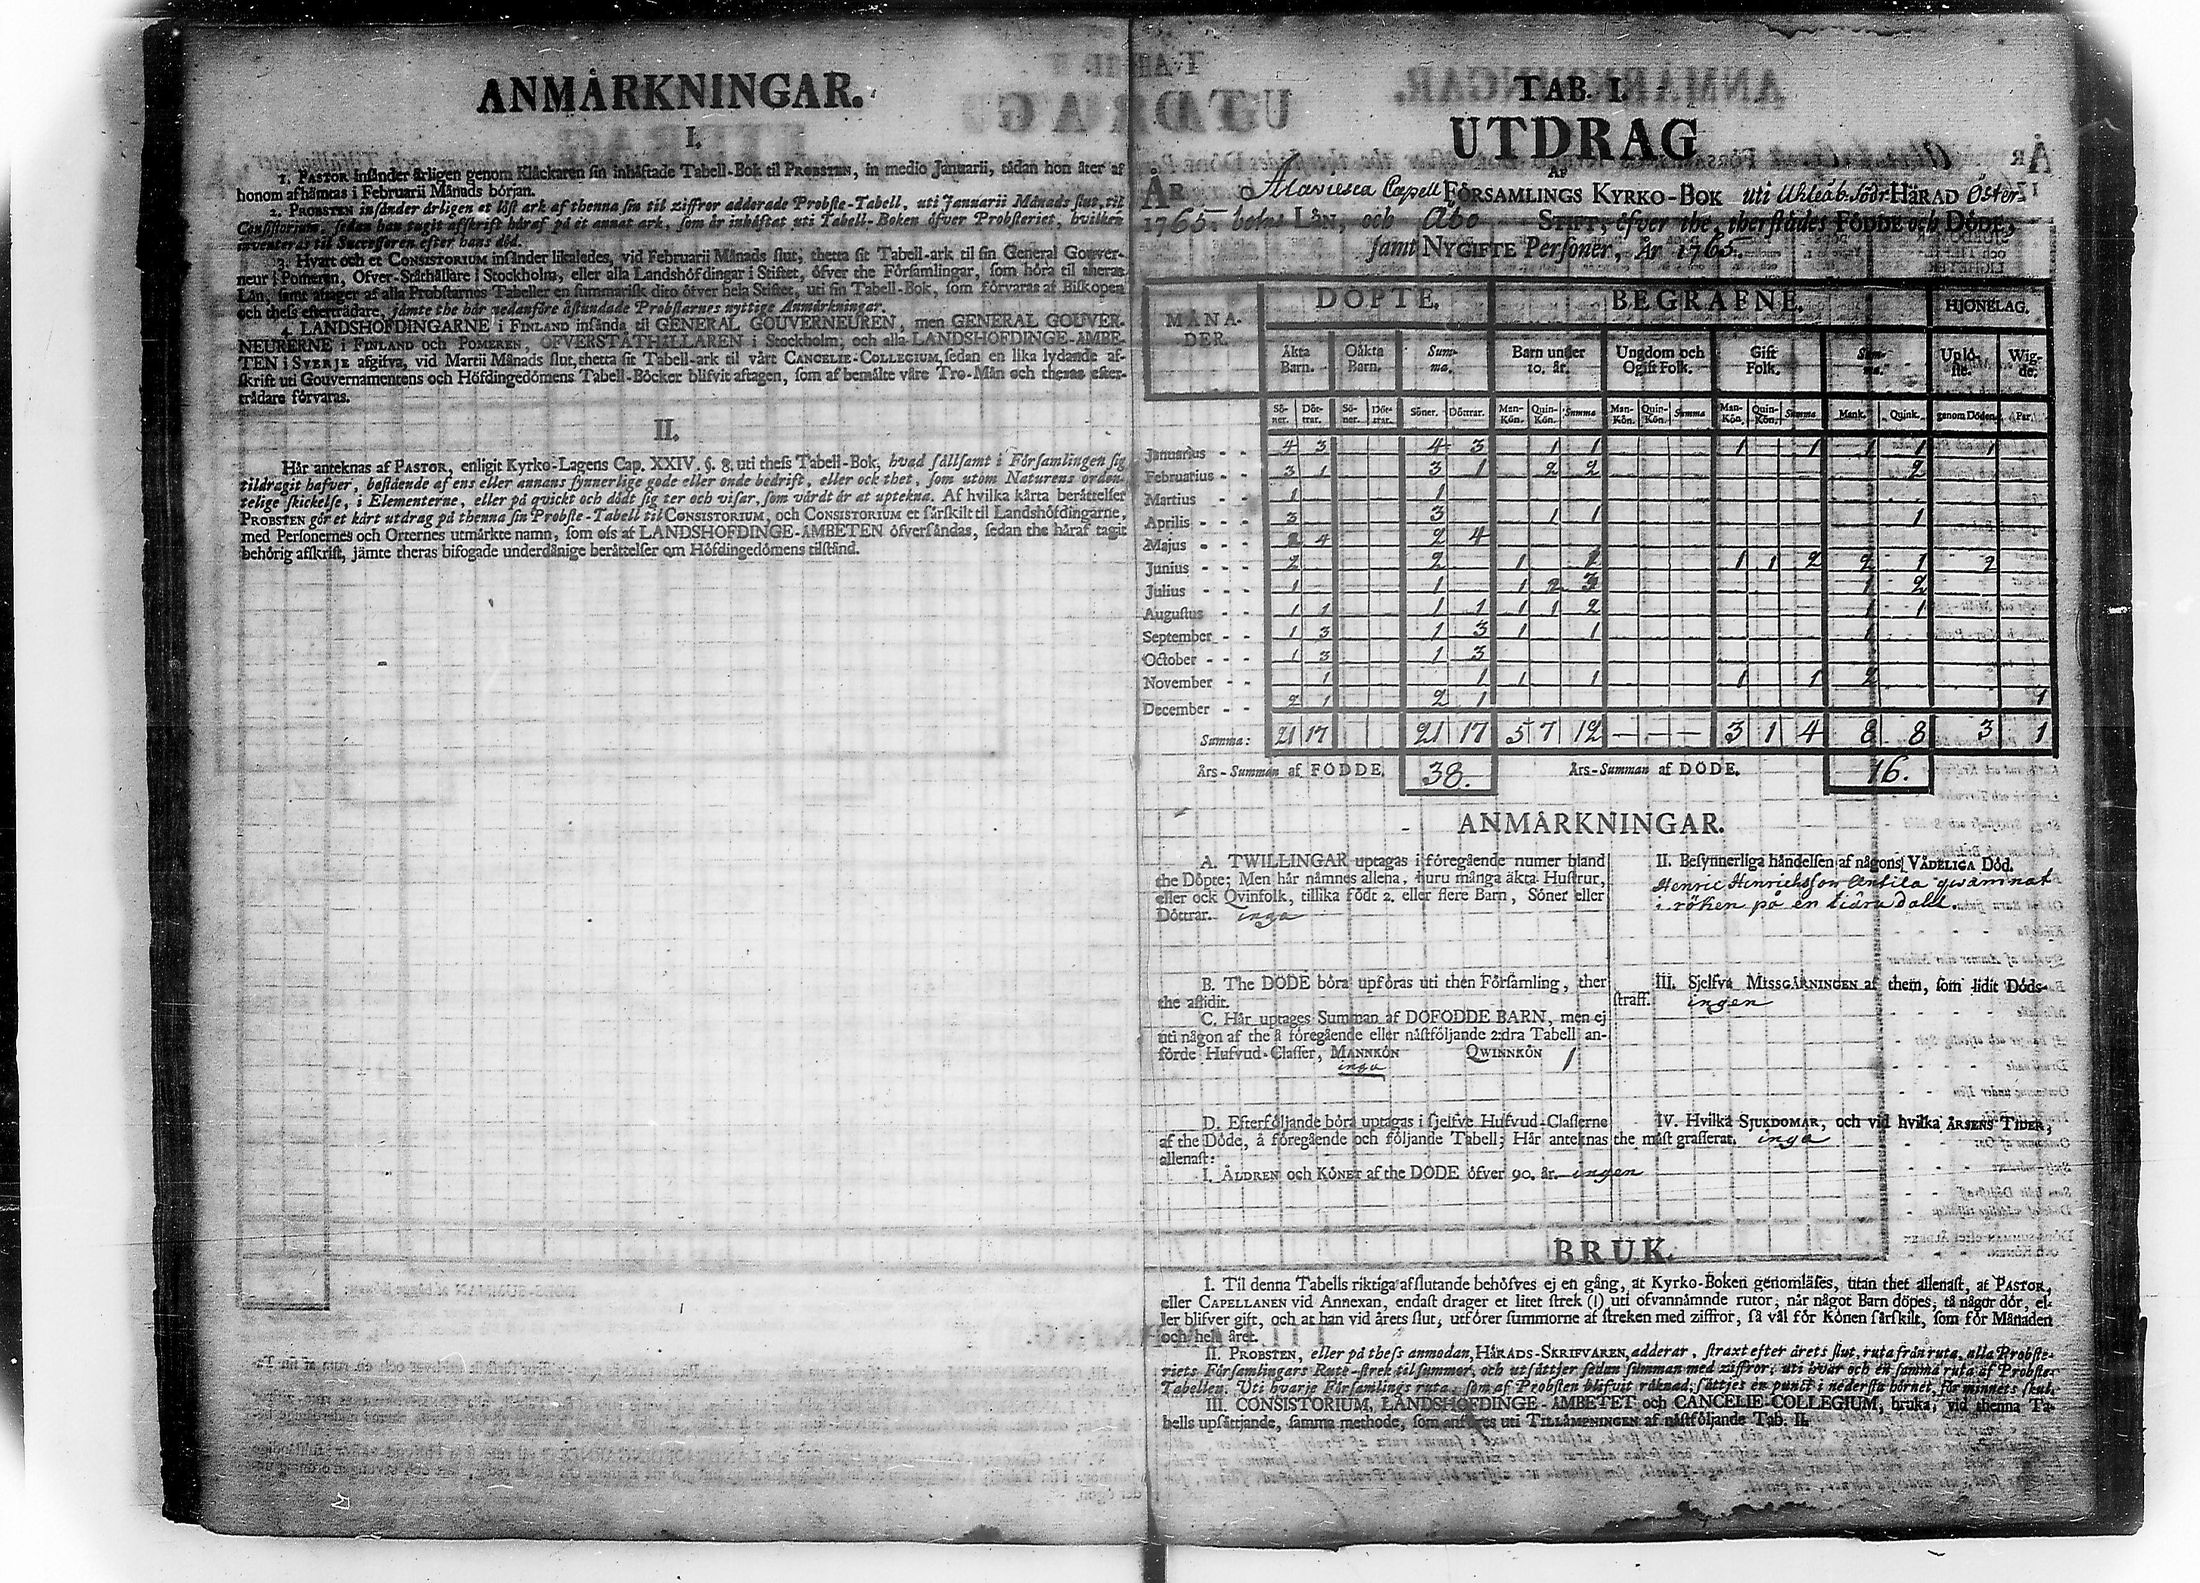 ANMÅRKNINGAR.
I.
1. PASTOR insänder årligen genom Klåckaren sin inhäftade Tabell-Bok til PROBSTEN, in medio Januarii, tådan hon åter af
honom afhämtas i Februarii Månads början.
2. PROBSTEN insänder årligen et löst ark af thenna sin til ziffror adderade Probste-Tabell, uti Januarii Månads slut, til
Consistorium, sedan han tagit afskrift häraf på et annat ark, som är inhäftat uti Tabell-Boken öfver Probsteriet, hvilken
inventeras til Successoren efter hans död.
3. Hvart och et CONSISTORIUM insänder likaledes, vid Februarii Månads slut, thetta sit Tabell-ark til sin General Gouver-
neur i Pomeren, Öfver-Ståthållare i Stockholm, eller alla Landshöfdingar i Stiftet, öfver the Församlingar, som höra til theras
Län, samt aftager af alla Probstarnes Tabeller en summarisk dito öfver hela Stiftet, uti sin Tabell-Bok, som förvaras af Biskopen
och thess efterträdare, jämte the här nedanföre åstundade Probstarnes nyttige Anmärkningar.
4. LANDSHÖFDINGARNE i FINLAND insända til GENERAL GOUVERNEUREN, men GENERAL GOUVER-
NEURERNE i FINLAND och POMEREN, ÖFVERSTÅTHÅLLAREN i Stockholm, och alla LANDSHÖFDINGE-ÄMBE-
TEN i SVERJE afgifva, vid Martii Månads slut, thetta sit Tabell-ark til vårt CANCELIE-COLLEGIUM, sedan en lika lydande af-
skrift uti Gouvernamentens och Höfdingedömens Tabell-Böcker blifvit aftagen, som af bemälte våre Tro-Män och theras efter-
trädare förvaras.
II.
Här anteknas af PASTOR, enligit Kyrko-Lagens Cap. XXIV. §. 8. uti thess Tabell-Bok, hvad sällsamt i Församlingen sig
tildragit hafver, bestående af ens eller annans synnerlige gode eller onde bedrift, eller ock thet, som utom Naturens orden-
telige skickelse, i Elementerne, eller på qvickt och dödt sig ter och visar, som värdt är at uptekna. Af hvilka korta berättelser
PROBSTEN gör et kort utdrag på thenna sin Probste-Tabell til CONSISTORIUM, och CONSISTORIUM et särskilt til Landshöfdingarne,
med Personernes och Orternes utmärkte namn, som oss af LANDSHÖFDINGE-ÄMBETEN öfversändas, sedan the häraf tagit
behörig afskrift, jämte theras bifogade underdånige berättelser om Höfdingedömens tilstånd.
TAB. I.
UTDRAG
AF
ÅR Alavieska Capell FÖRSAMLINGS KYRKO-BOK uti Uhleåb. Södr HÄRAD Öster
1765. botns LÄN, och Åbo STIFT, öfver the, therstädes FÖDDE och DÖDE,
samt NYGIFTE Personer, År 1765.
MÅNA-
DER.
DÖPTE. BEGRAFNE. HJONELAG.
Äkta Barn. Oäkta Barn. Summa. Barn under 10. år. Ungdom och Ogift Folk. Gift Folk. Summa. Uplöste. Wigde.
Söner. Döttrar. Söner. Döttrar. Söner. Döttrar. Man-Kön. Quin-Kön. Summa Man-Kön. Quin-Kön. Summa Man-Kön. Quin-Kön. Summa Mank. Quink. genom Döden. Par.
Januarius - - 4 3 4 3 1 1 1 1 1 1 1
Februarius - - 3 1 3 1 2 2 2
Martius - - 1 1
Aprilis - - - 3 3 1 1 1
Majus - - - 2 4 2 4
Junius - - - 2 2 1 1 1 1 2 2 1 2
Julius - - - 1 1 1 2 3 1 2
Augustus - - 1 1 1 1 1 1 2 1 1
September - - 1 3 1 3 1 1 1
October - - - 1 3 1 3
November - - 1 1 1 1 1 1 2
December - - 2 1 2 1 1
Summa: 21 17 21 17 5 7 12 — — — 3 1 4 8 8 3 1
Års-Summan af FÖDDE. 38. Års-Summan af DÖDE. 16.
ANMÅRKNINGAR.
A. TWILLINGAR uptagas i föregående numer bland
the Döpte; Men här nämnes allena, huru många äkta Hustrur,
eller ock Qvinfolk, tillika födt 2. eller flere Barn, Söner eller
Döttrar. inga
B. The DÖDE böra upföras uti then Församling, ther
the aflidit.
C. Här uptages Summan af DÖFÖDDE BARN, men ej
uti någon af the å föregående eller nästföljande 2:dra Tabell an-
förde Hufvud-Classer, MANNKÖN QWINNKÖN 1
inga
D. Efterföljande böra uptagas i sjelfve Hufvud-Classerne
af the Döde, å föregående och följande Tabell; Här anteknas
allenast:
I. ÅLDREN och KÖNET af the DÖDE öfver 90. år. ingen
II. Besynnerliga händelsen af någons VÅDELIGA Död.
Henric Henrichsson Antila qwämnat
i röken på en tiäru dahl.
III. Sjelfva MISSGÄRNINGEN af them, som lidit Döds-
straff. ingen
IV. Hvilka SJUKDOMAR, och vid hvilka ÅRSENS TIDER,
the mäst grasserat. inga
BRUK.
I. Til denna Tabells riktiga afslutande behöfves ej en gång, at Kyrko-Boken genomläses, utan thet allenast, at PASTOR,
eller CAPELLANEN vid Annexan, endast drager et litet strek (|) uti ofvannämnde rutor, när något Barn döpes, tå någor dör, el-
ler blifver gift, och at han vid årets slut, utförer summorne af streken med ziffror, så väl för Könen särskilt, som för Månaden
och hela året.
II. PROBSTEN, eller på thess anmodan, HÄRADS-SKRIFVAREN, adderar, straxt efter årets slut, ruta från ruta, alla Probste-
riets Församlingars Rute-strek til summor, och utsättjer sedan summan med ziffror, uti hvar och en samma ruta af Probste-
Tabellen. Uti hvarje Församlings ruta, som af Probsten blifvit räknad, sättjes en punct i nedersta hörnet, för minnets skul.
III. CONSISTORIUM, LANDSHÖFDINGE-ÄMBETET och CANCELIE-COLLEGIUM, bruka, vid thenna Ta-
bells upsättjande, samma methode, som anföres uti TILLÄMPNINGEN af nästföljande Tab. II.